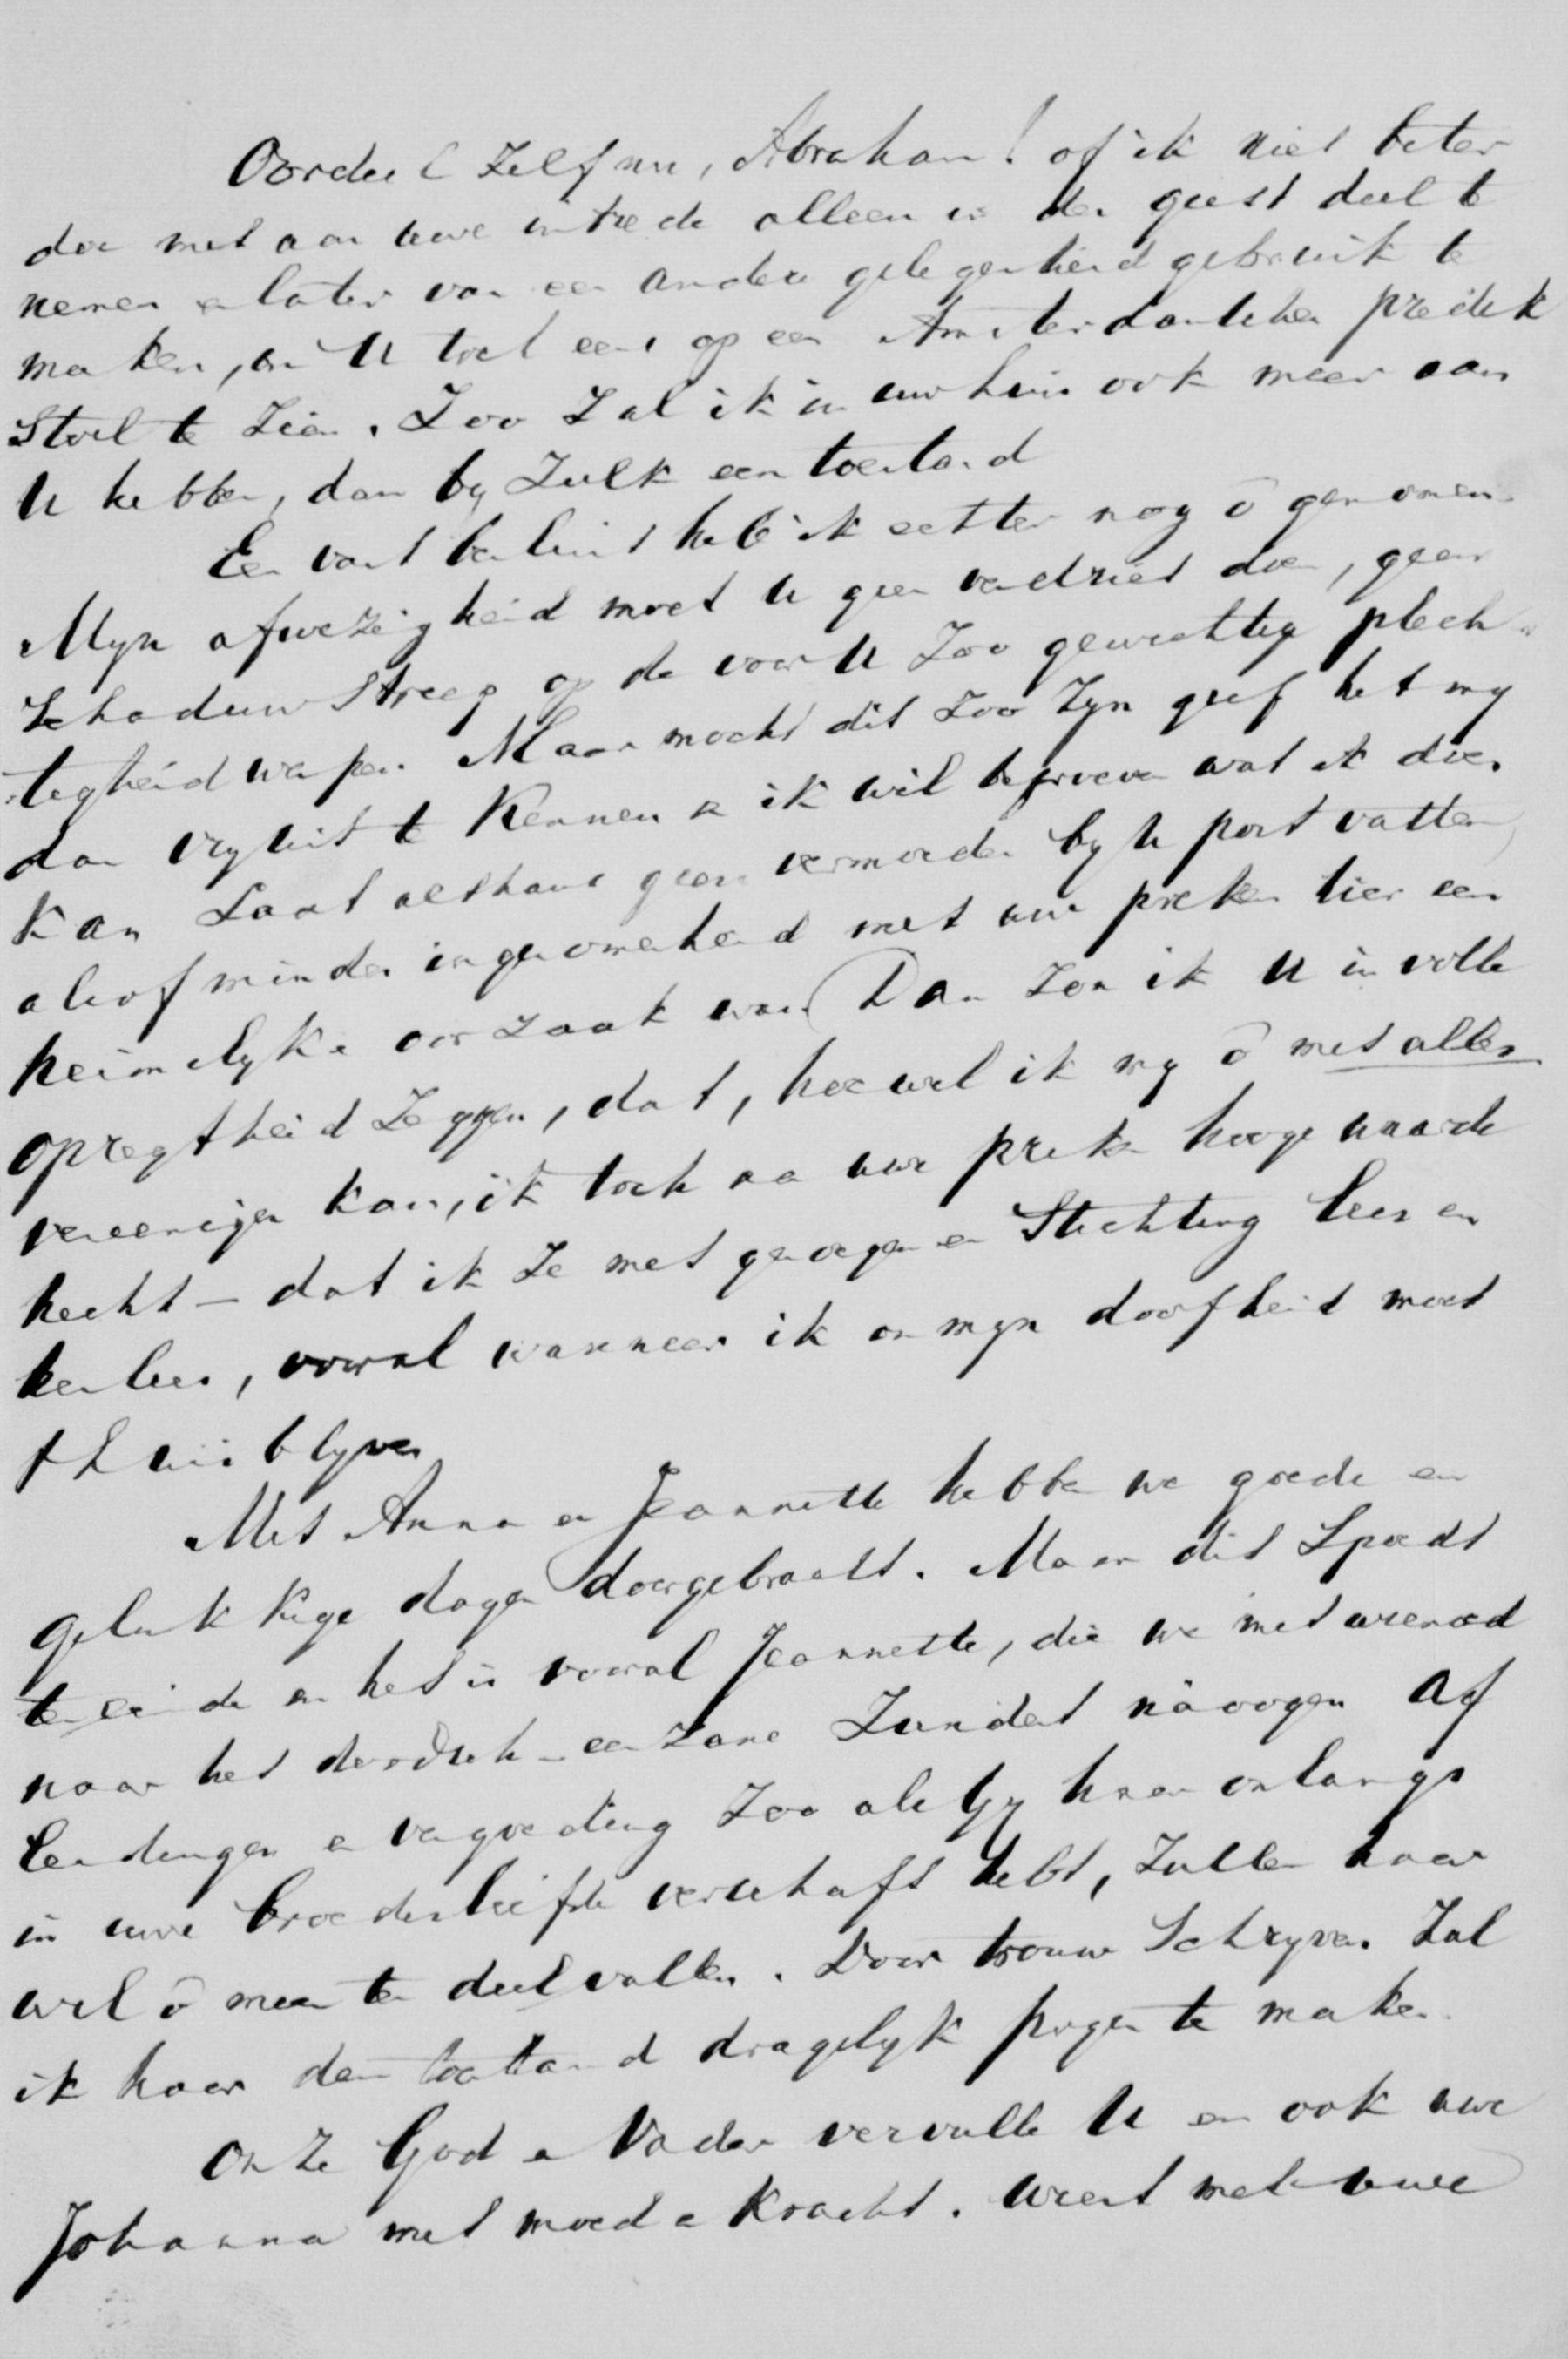 Oordeel zelf nu, Abraham! of ik niet beter
doe met aan uwe intrede alleen in den geest deel te
nemen en later van een andere gelegenheid gebruik te
maken, om U toch eens op een Amsterdamschen predik
stoel te zien. Zoo zal ik in uw huis ook meer aan
U hebben, dan by zulk een toestand
Een vast besluit heb ik echter nog ō genomen.
Myn afwezigheid moet U geen verdriet doen, geen
schaduwstreep op de voor U zoo gewichtige plech-
tigheid werpen. Maar mocht dit zoo zyn geef het my
dan vryuit te kennen en ik wil beproeven wat ik doen
kan Laat althans geen vermoeden by U post vatten,
alsof minder ingenomenheid met uw preken hier een
heimelyke oorzaak was. Dan zou ik U in volle
opregtheid zeggen, dat, hoewel ik my ō met alles
vereenigen kan, ik toch aa uwe preken hooge waarde
hecht - dat ik ze met genoegen en stichting lees en
herlees, vooral wanneer ik om myn doofheid moet
thuis blyven
Met Anna en Jeannette hebben we goede en
gelukkige dagen doorgebracht. Maar dit spoedt
ten einde en het is vooral Jeannette, die we met weemoed
naar het doodsch-eenzame Zundert náoogen Af
leidingen en vergoeding zoo als Gy haar onlangs
in uwe broederliefde verschaft hebt, zullen haar
wel ō meer ten deel vallen. Door trouw schryven zal
ik haar den toestand dragelyk pogen te maken.
Onze God en Vader vervulle U en ook uwe
Johanna met moed en kracht. Weest met uwe